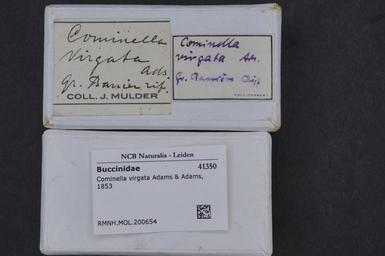 Cominella
virgata
Ads.
Gr. Barrier rif.
COLL. J. MULDER
Cominella
virgata Ads.
Gr. Barrière Rif.
NCB Naturalis - Leiden
Buccinidae 41350
Cominella virgata Adams & Adams,
1853
RMNH.MOL.200654